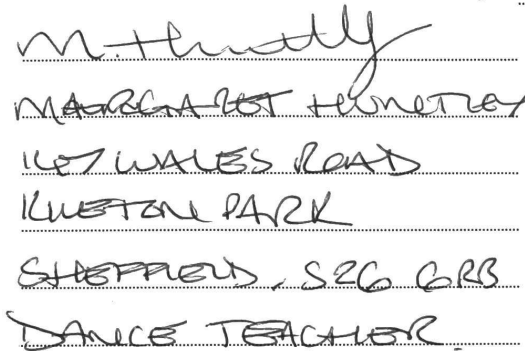 M. Huntly
MARGARET HUNTLEY
167 WALES ROAD
KIVETON PARK
SHEFFIELD, S26 6RB
DANCE TEACHER.